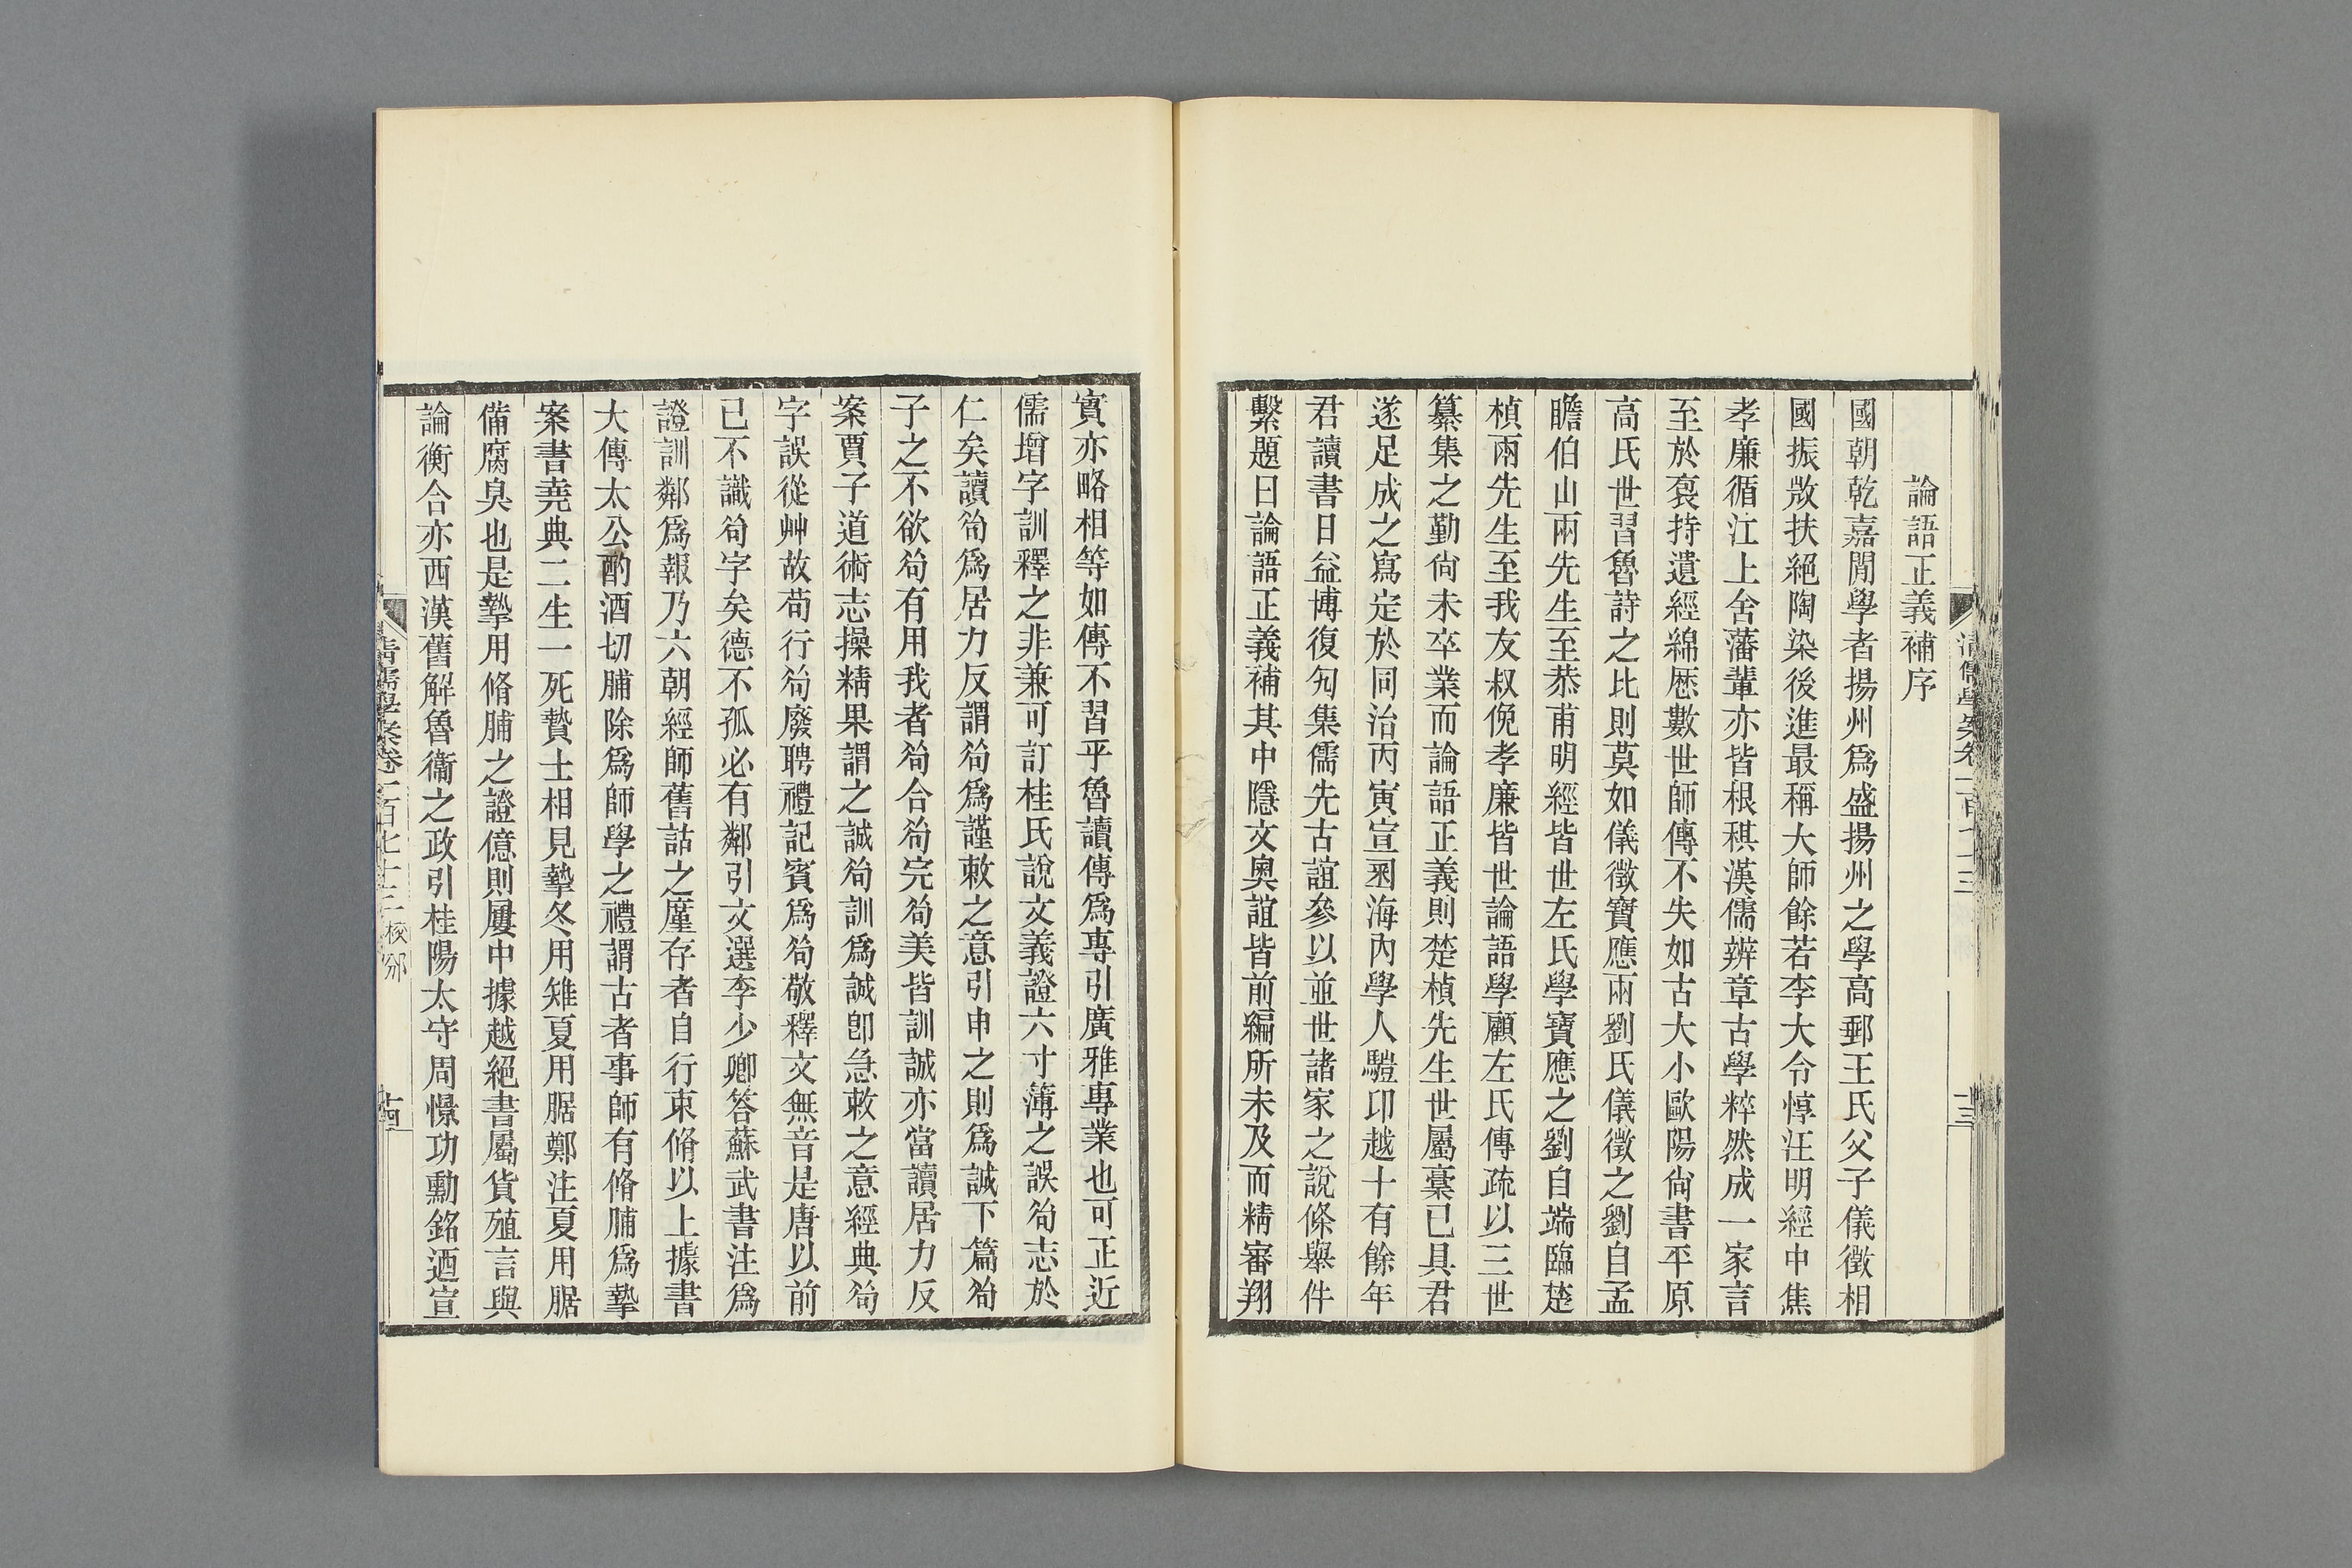 論語正義補序
國朝乾嘉閒學者揚州爲盛揚州之學高郵王氏父子儀徵相
國振敚扶絕陶染後進最稱大師餘若李大令惇汪明經中焦
孝廉循江上舍藩輩亦皆根稘漢儒辨章古學粹然成一家言
至於裒持遺經綿歷數世師傳不失如古大小歐陽尙書平原
高氏世習魯詩之比則莫如儀徵寶應兩劉氏儀徵之劉自孟
瞻伯山兩先生至恭甫明經皆世左氏學寶應之劉自端臨楚
楨兩先生至我友叔俛孝廉皆世論語學顧左氏傳疏以三世
纂集之勤尙未卒業而論語正義則楚楨先生世屬稾已具君
遂足成之寫定於同治丙寅宣圂海內學人驣卬越十有餘年
君讀書日益博復匃集儒先古誼參以並世諸家之說條舉件
繫題曰論語正義補其中隱文奧誼皆前編所未及而精審翔
實亦略相等如傳不習乎魯讀傳爲專引廣雅專業也可正近
儒增字訓釋之非兼可訂桂氏說文義證六寸簿之誤茍志於
仁矣讀茍爲居力反謂茍爲謹敕之意引申之則爲誠下篇茍
子之不欲茍有用我者茍合茍完茍美皆訓誠亦當讀居力反
案賈子道術志操精果謂之誠茍訓爲誠卽急敕之意經典茍
字誤從艸故苟行茍廢聘禮記賓爲茍敬釋文無音是唐以前
已不識茍字矣德不孤必有鄰引文選李少卿答蘇武書注爲
證訓鄰爲報乃六朝經師舊詁之廑存者自行束脩以上據書
大傳太公酌酒切脯除爲師學之禮謂古者事師有脩脯爲摯
案書堯典二生一死贄士相見摯冬用雉夏用腒鄭注夏用腒
備腐臭也是摯用脩脯之證億則屢中據越絕書屬貨殖言與
論衡合亦西漢舊解魯衞之政引桂陽太守周憬功勳銘迺宣
清儒學案卷一百七十三
十三
清儒學案卷一百七十三
十四